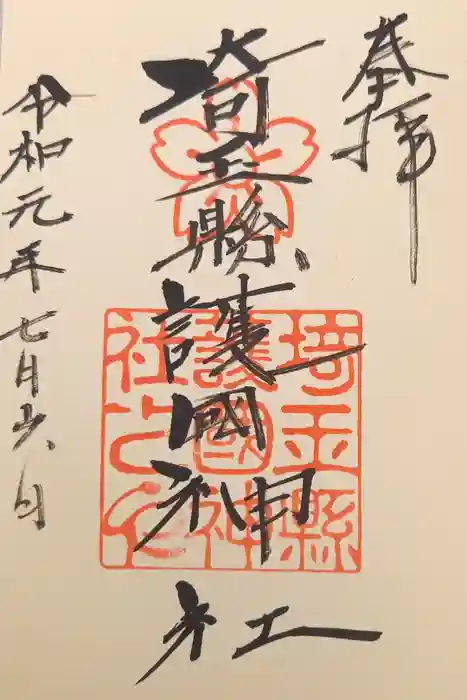 奉拝
埼玉縣護國神社
埼玉縣護國神社之印
令和元年七月廿八日